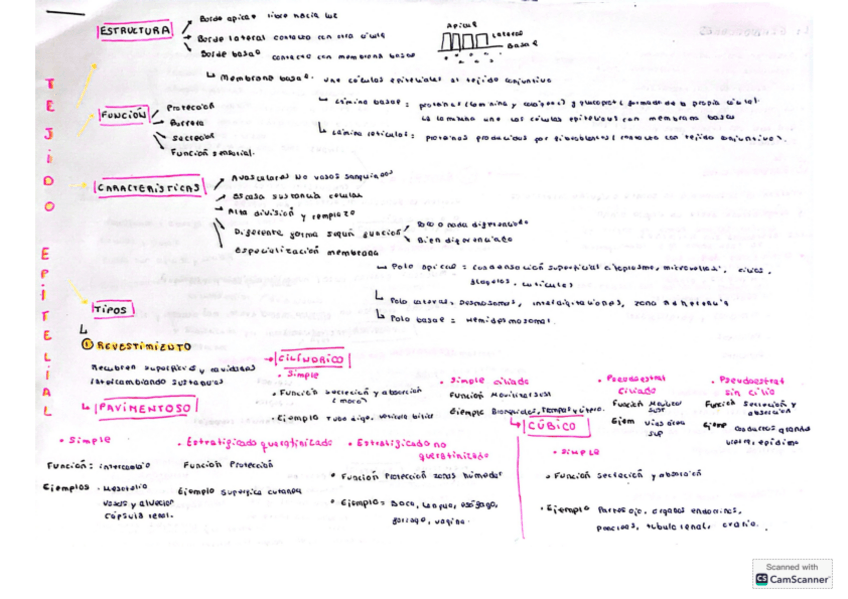 TEJIDO EPITELIAL
ESTRUCTURA
Borde apical libre hacia luz
Borde lateral contacto con otra célula
Borde basal contacto con membrana basal
Apical
Lateral
Basal
Membrana basal: une células epiteliales al tejido conjuntivo
Lámina basal = proteínas (laminina y colágeno) y glucoprot (formada de la propia célula).
La laminina une las células epiteliales con membrana basal
Lámina reticular: proteínas producidas por fibroblastos (contacto con tejido conjuntivo).
FUNCIÓN
Protección
Barrera
Secreción
Función sensorial.
CARACTERÍSTICAS
Avasculares No vasos sanguíneos
Escasa sustancia celular
Alta división y remplazo
Diferente forma según función
Poco o nada diferenciado
Bien diferenciado
Especialización membrana
Polo apical = condensación superficial citoplasma, microvellosi., cilios,
flagelos, cutículas
Polo lateral = Desmosomas, interdigitaciones, zona adherens
Polo basal = Hemidesmosomas.
TIPOS
1 REVESTIMIENTO
Recubren superficies y cavidades
intercambiando sustancias
CILÍNDRICO
• Simple
• Función secreción y absorción
• Ejemplo Tubo dige, vesícula biliar
• Simple ciliado
Función Movilizar sust
Ejemplo Bronquiolos, trompas y útero.
• Pseudoestrat
ciliado
Función Movilizar
sust
Ejem vías aéreas
sup
• Pseudoestrat
sin cilio
Función Secreción y
absorción
Ejemp conductos grandes
PAVIMENTOSO
• Simple
Función: intercambio
Ejemplos - Mesotelio
vasos y alveolos
cápsula renal.
• Estratificado queratinizado
Función Protección
Ejemplo superficie cutánea
• Estratificado no
queratinizado
• Función Protección zonas húmedas
• Ejemplo = Boca, lengua, esófago,
vagina.
CÚBICO
• simple
• Función secreción y absorción
• Ejemplo Partes ojo, órganos endocrinos,
páncreas, túbulo renal, ovario.
Scanned with
CS CamScanner